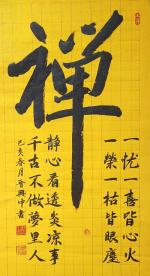 禪
一忧一喜皆心火
一榮一枯皆眼塵
静心看透炎凉事
千古不做夢里人
己亥春月晋興中書